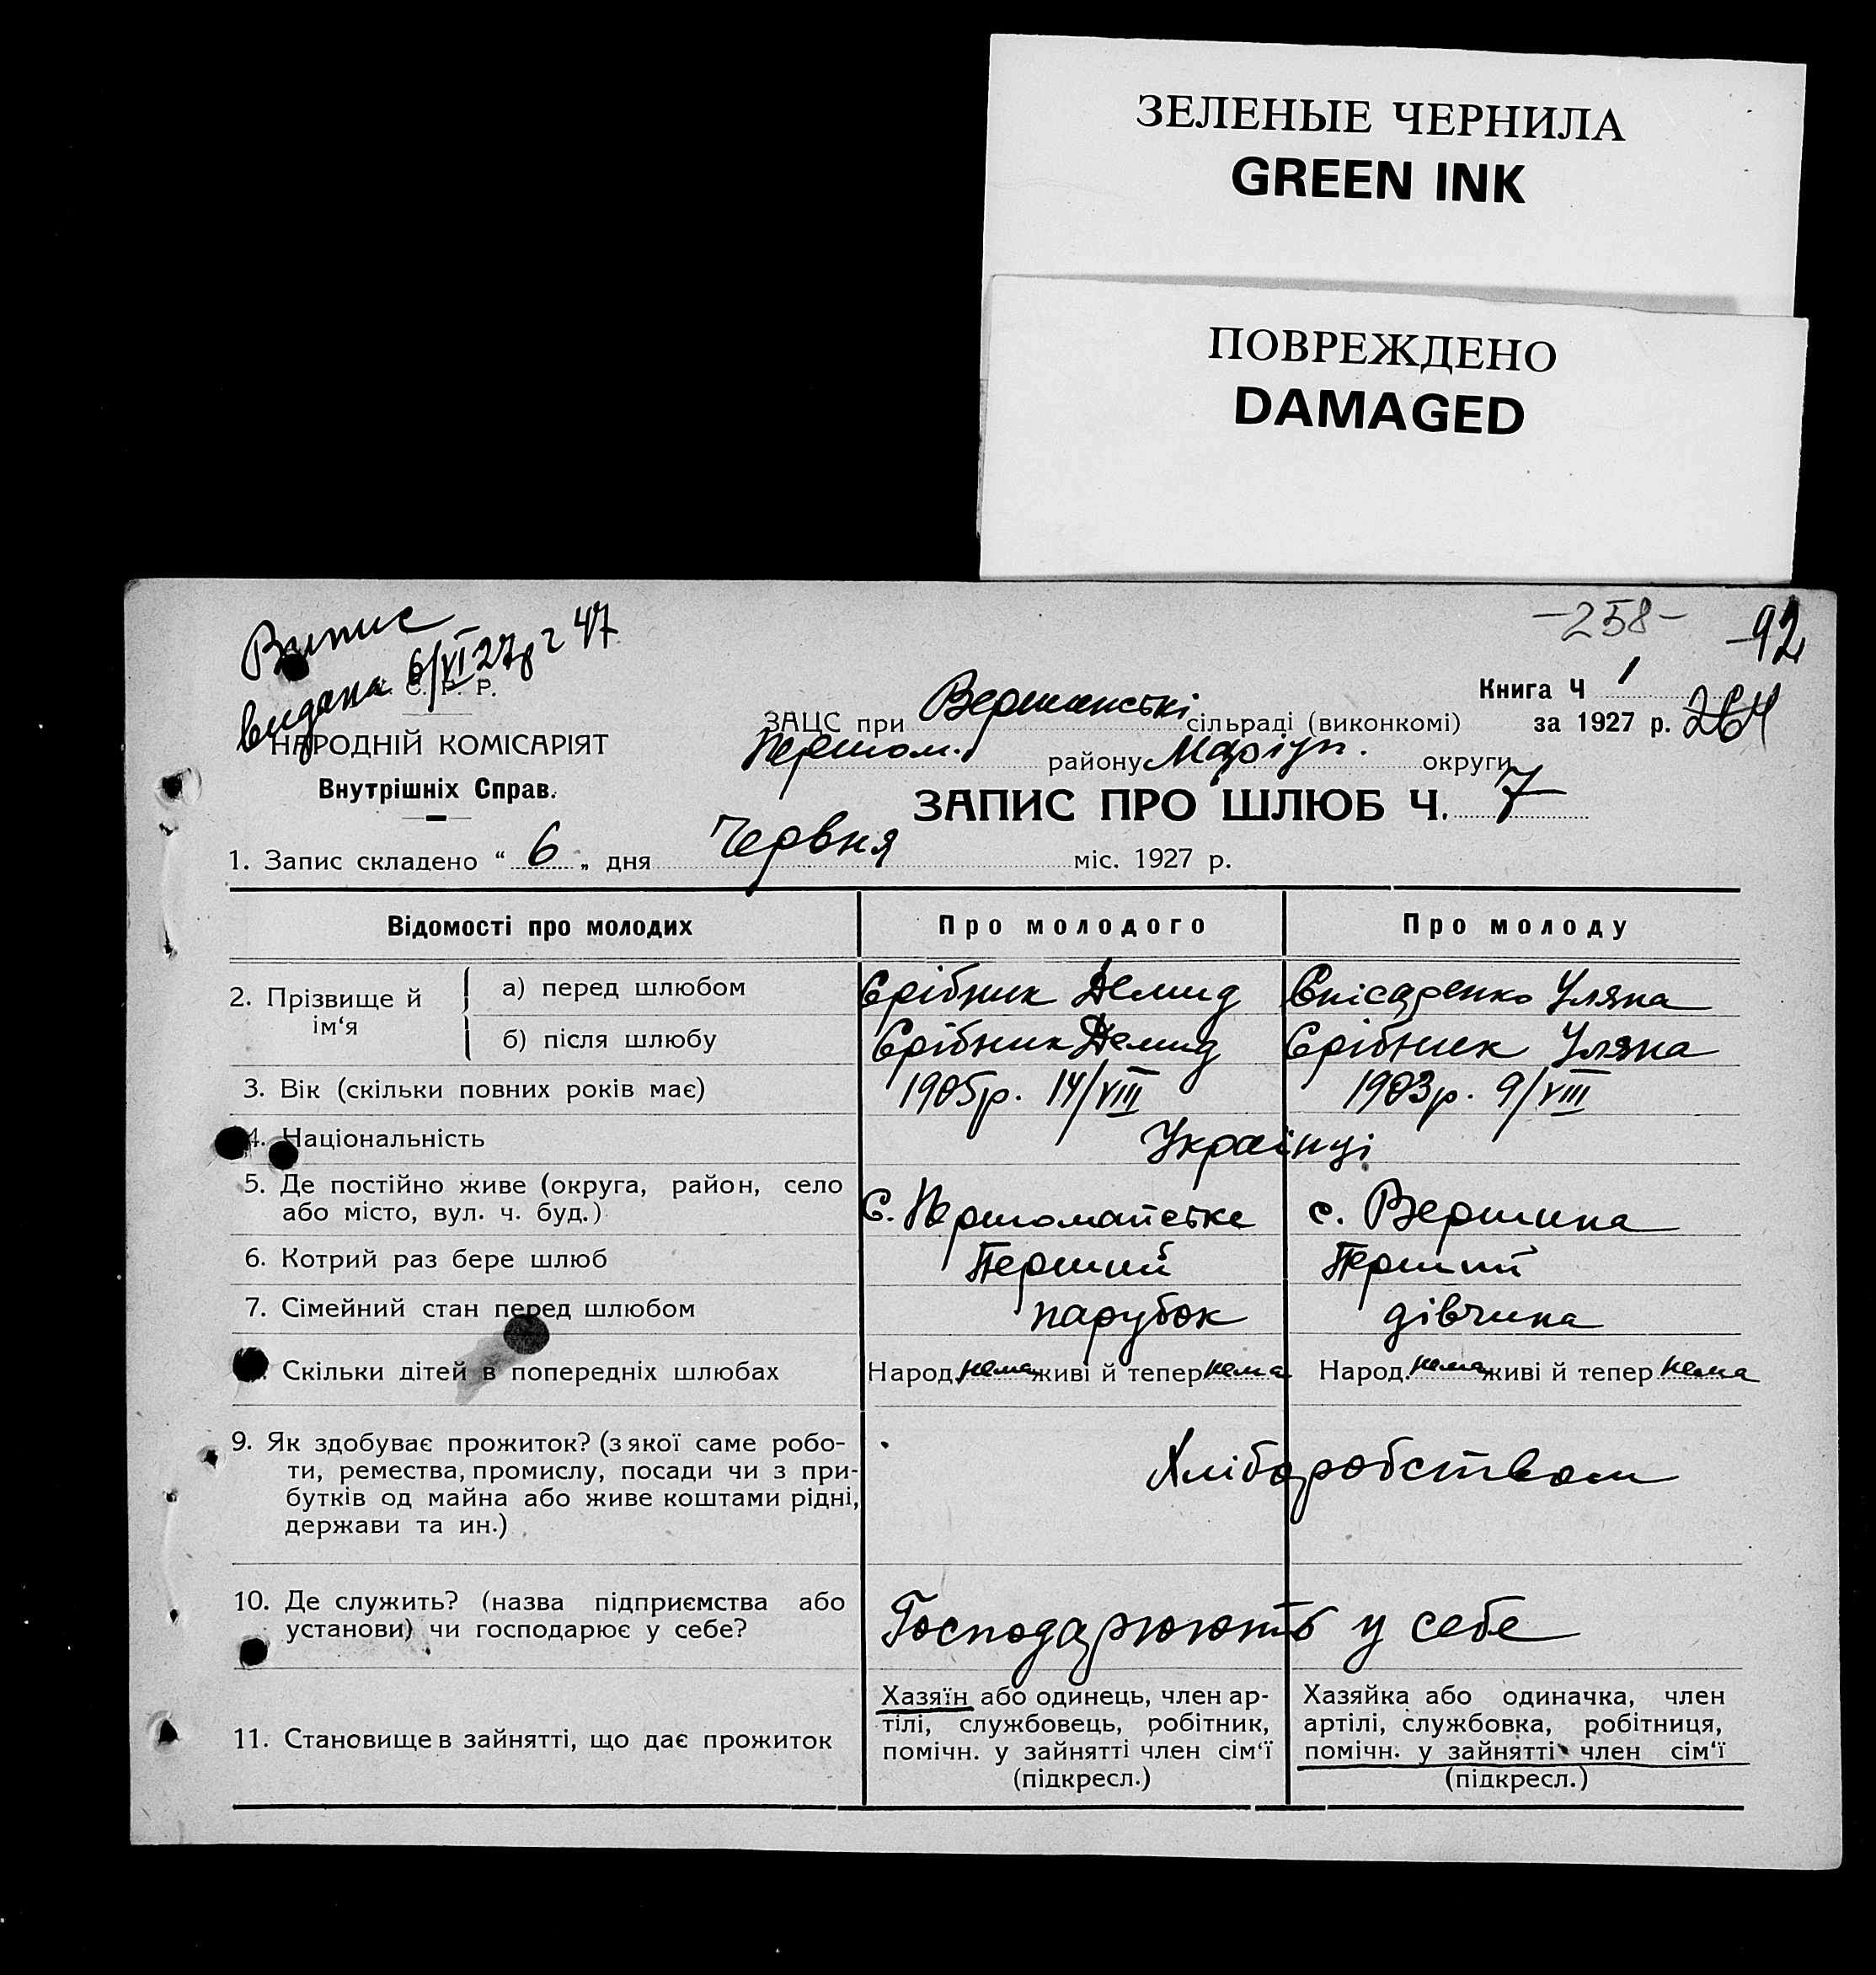 ЗЕЛЕНЫЕ ЧЕРНИЛА
GREEN INK
ПОВРЕЖДЕНО
DAMAGED
-258-
-92
Випис
видана 6/VI 27р ч 47
С. Р. Р.
НАРОДНІЙ КОМІСАРІЯТ
Внутрішніх Справ.
Книга Ч 1
за 1927 р. 264
ЗАЦС при Вершинські сільраді (виконкомі)
Першом. району Маріуп. округи
ЗАПИС ПРО ШЛЮБ Ч. 7
1. Запис складено “ 6 „ дня Червня міс. 1927 р.
Відомості про молодих Про молодого Про молоду
2. Прізвище й ім‘я
а) перед шлюбом Срібник Демид Снісаренко Уляна
б) після шлюбу Срібник Демид Срібник Уляна
3. Вік (скільки повних років має) 1905р. 14/VIII 1903р. 9/VIII
4. Національність Українці
5. Де постійно живе (округа, район, село
або місто, вул. ч. буд.) С. Першомайське с. Вершина
6. Котрий раз бере шлюб Перший Перший
7. Сімейний стан перед шлюбом парубок дівчина
Скільки дітей в попередніх шлюбах Народ. нема живі й тепер нема Народ. нема живі й тепер нема
9. Як здобуває прожиток? (з якої саме робо-
ти, ремества, промислу, посади чи з при-
бутків од майна або живе коштами рідні,
держави та ин.)
Хліборобством
10. Де служить? (назва підприємства або
установи) чи господарює у себе?
Господарюють у себе
11. Становище в зайнятті, що дає прожиток
Хазяїн або одинець, член ар-
тілі, службовець, робітник,
помічн. у зайнятті член сім‘ї
(підкресл.)
Хазяйка або одиначка, член
артілі, службовка, робітниця,
помічн. у зайнятті член сім‘ї
(підкресл.)